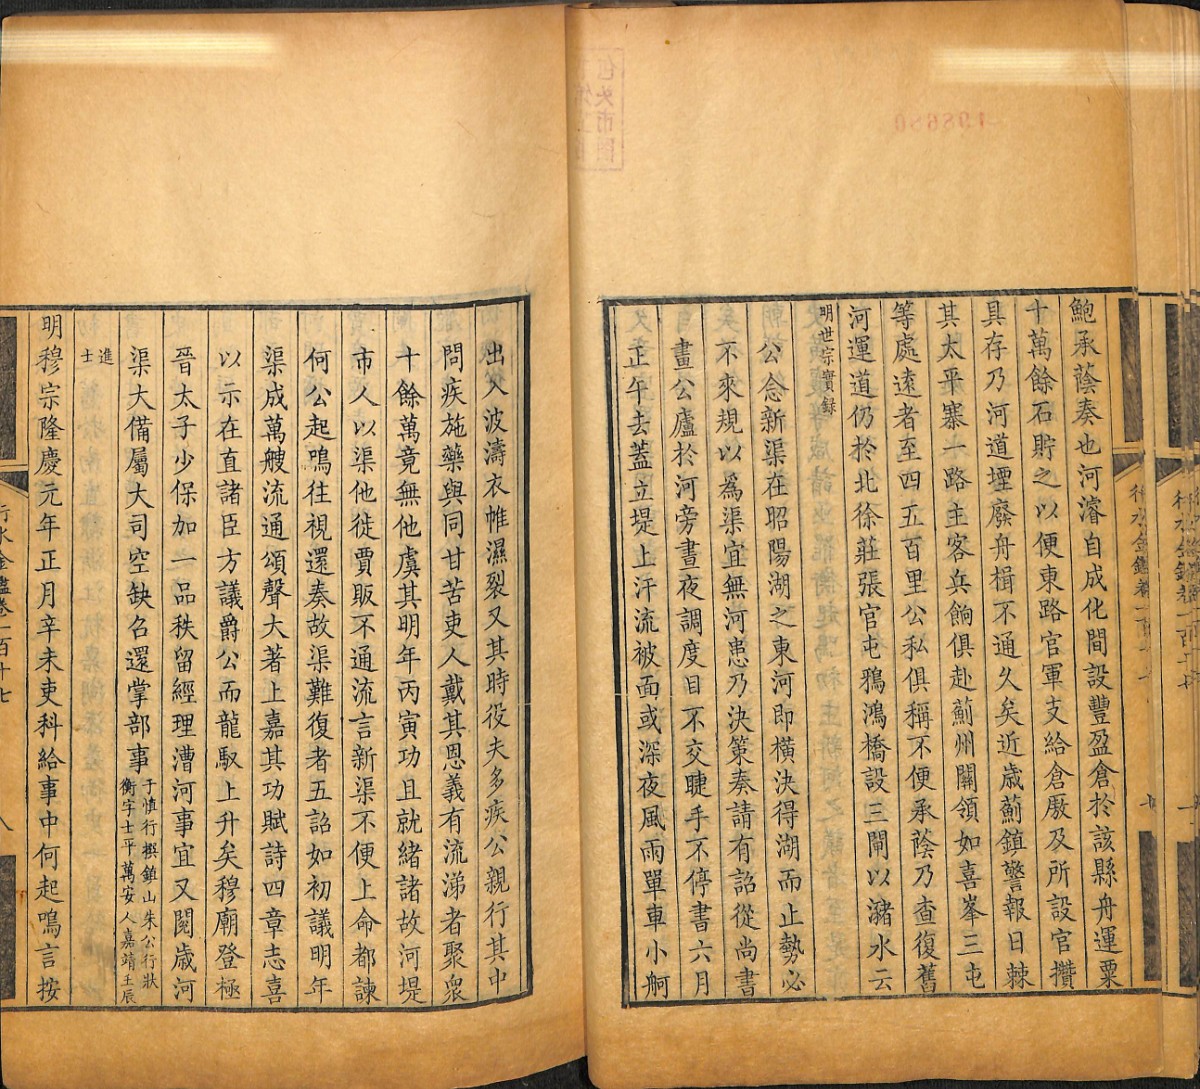 鮑承蔭奏也河濬自成化間設豐盈倉於該縣舟運粟
十萬餘石貯之以便東路官軍支給倉廒及所設官攢
具存乃河道堙廢舟楫不通久矣近歲薊鎮警報日棘
其太平寨一路主客兵餉俱赴薊州關領如喜峯三屯
等處遠者至四五百里公私俱稱不便承蔭乃查復舊
河運道仍於北徐莊張官屯鴉鴻橋設三閘以瀦水云
明世宗實録
公念新渠在昭陽湖之東河即橫決得湖而止勢必
不來規以為渠宜無河患乃決策奏請有詔從尚書
畫公廬於河旁晝夜調度目不交睫手不停書六月
正午去蓋立堤上汗流被面或深夜風雨單車小舸
出入波濤衣帷濕裂又其時役夫多疾公親行其中
問疾施藥與同甘苦吏人戴其恩義有流涕者聚眾
十餘萬竟無他虞其明年丙寅功且就緒諸故河堤
市人以渠他徙賈販不通流言新渠不便上命都諫
何公起鳴往視還奏故渠難復者五詔如初議明年
渠成萬艘流通頌聲大著上嘉其功賦詩四章志喜
以示在直諸臣方議爵公而龍馭上升矣穆廟登極
晉太子少保加一品秩留經理漕河事宜又閱歲河
渠大備屬大司空缺召還掌部事于慎行撰鎮山朱公行狀
衡字士平萬安人嘉靖壬辰
進士
明穆宗隆慶元年正月辛未吏科給事中何起鳴言按
行水金鑑卷一百十七
八